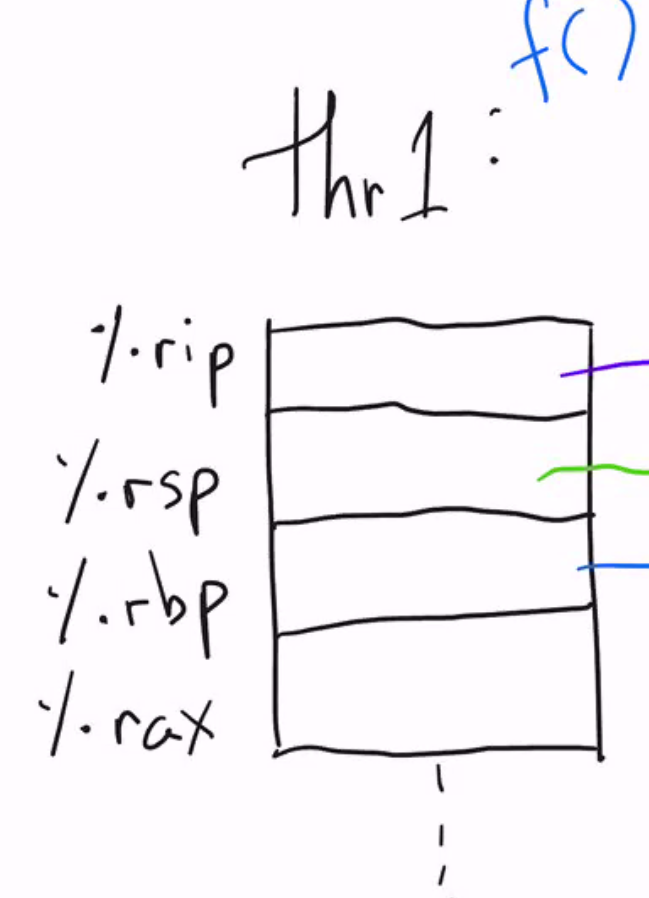 f()
thr1:
%rip
%rsp
%rbp
%rax